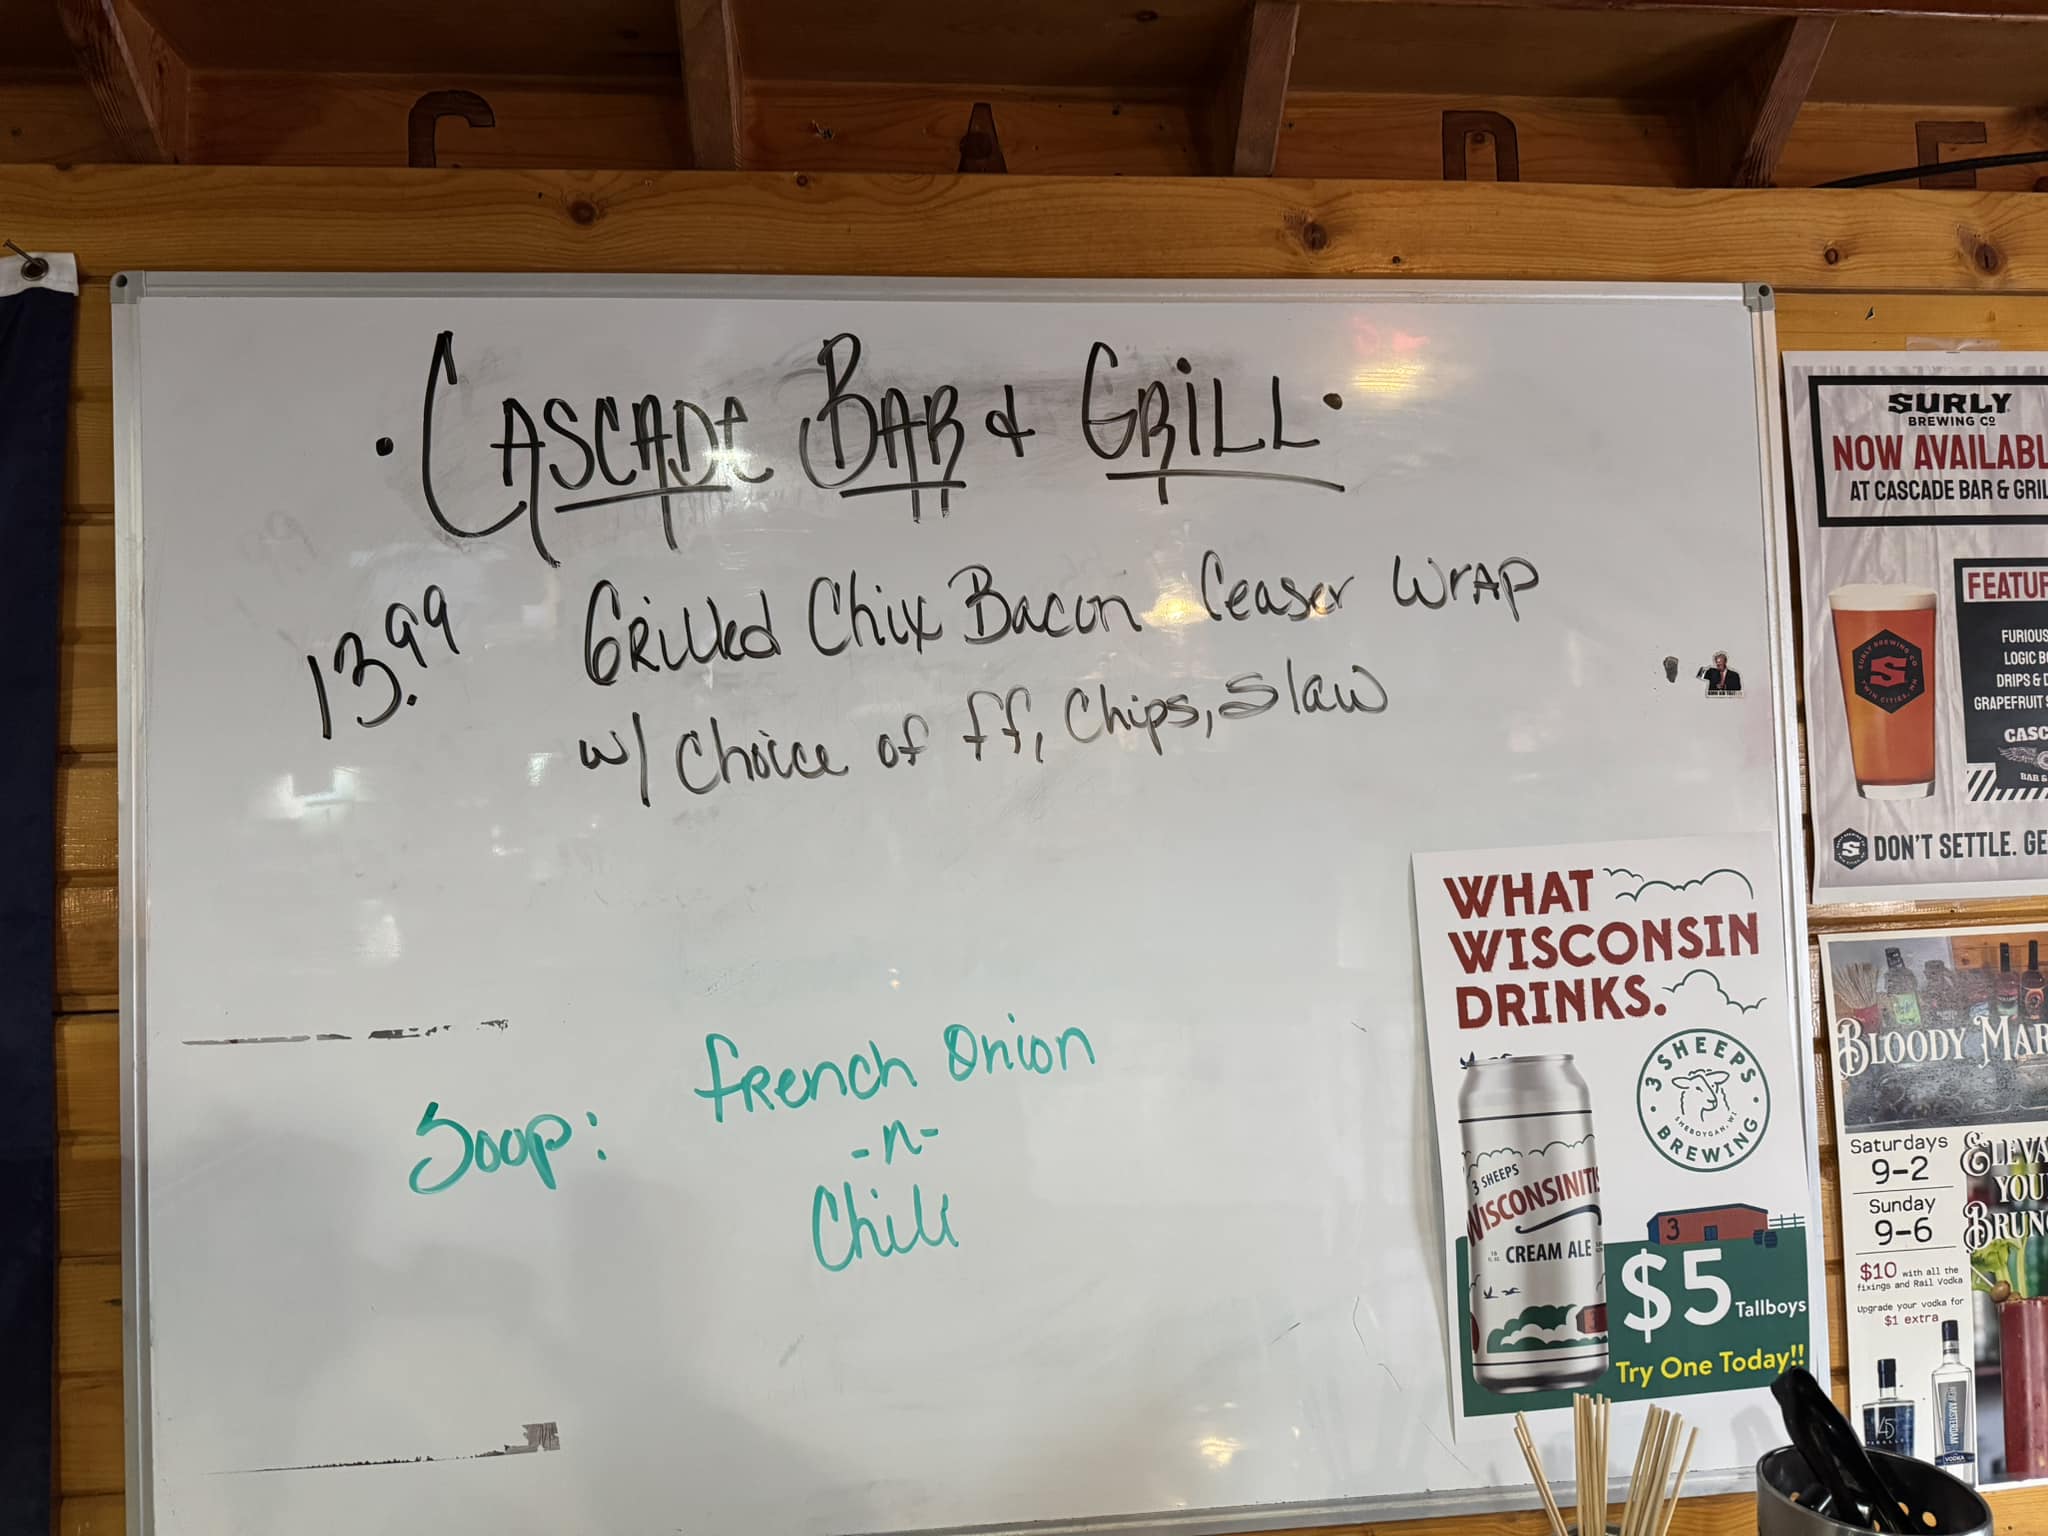 C A D E
· CASCADE BAR & GRILL ·
13.99 Grilled Chix Bacon Ceaser Wrap
w/ Choice of ff, Chips, Slaw
Soup: French Onion
-n-
Chili
WHAT
WISCONSIN
DRINKS.
3 SHEEPS
BREWING
SHEBOYGAN, WI
3 SHEEPS
WISCONSINITE
CREAM ALE
3
$5 Tallboys
Try One Today!!
SURLY
BREWING CO
NOW AVAILABL
AT CASCADE BAR & GRIL
FEATUR
FURIOUS
LOGIC BO
DRIPS & D
GRAPEFRUIT S
CASC
BAR &
SURLY BREWING CO.
S
TWIN CITIES, MN
S
DON'T SETTLE. GE
BLOODY MAR
Saturdays
9-2
Sunday
9-6
$10 with all the
fixings and Rail Vodka
Upgrade your vodka for
$1 extra
ELEVA
YOU
BRUN
45
NEW AMSTERDAM
VODKA